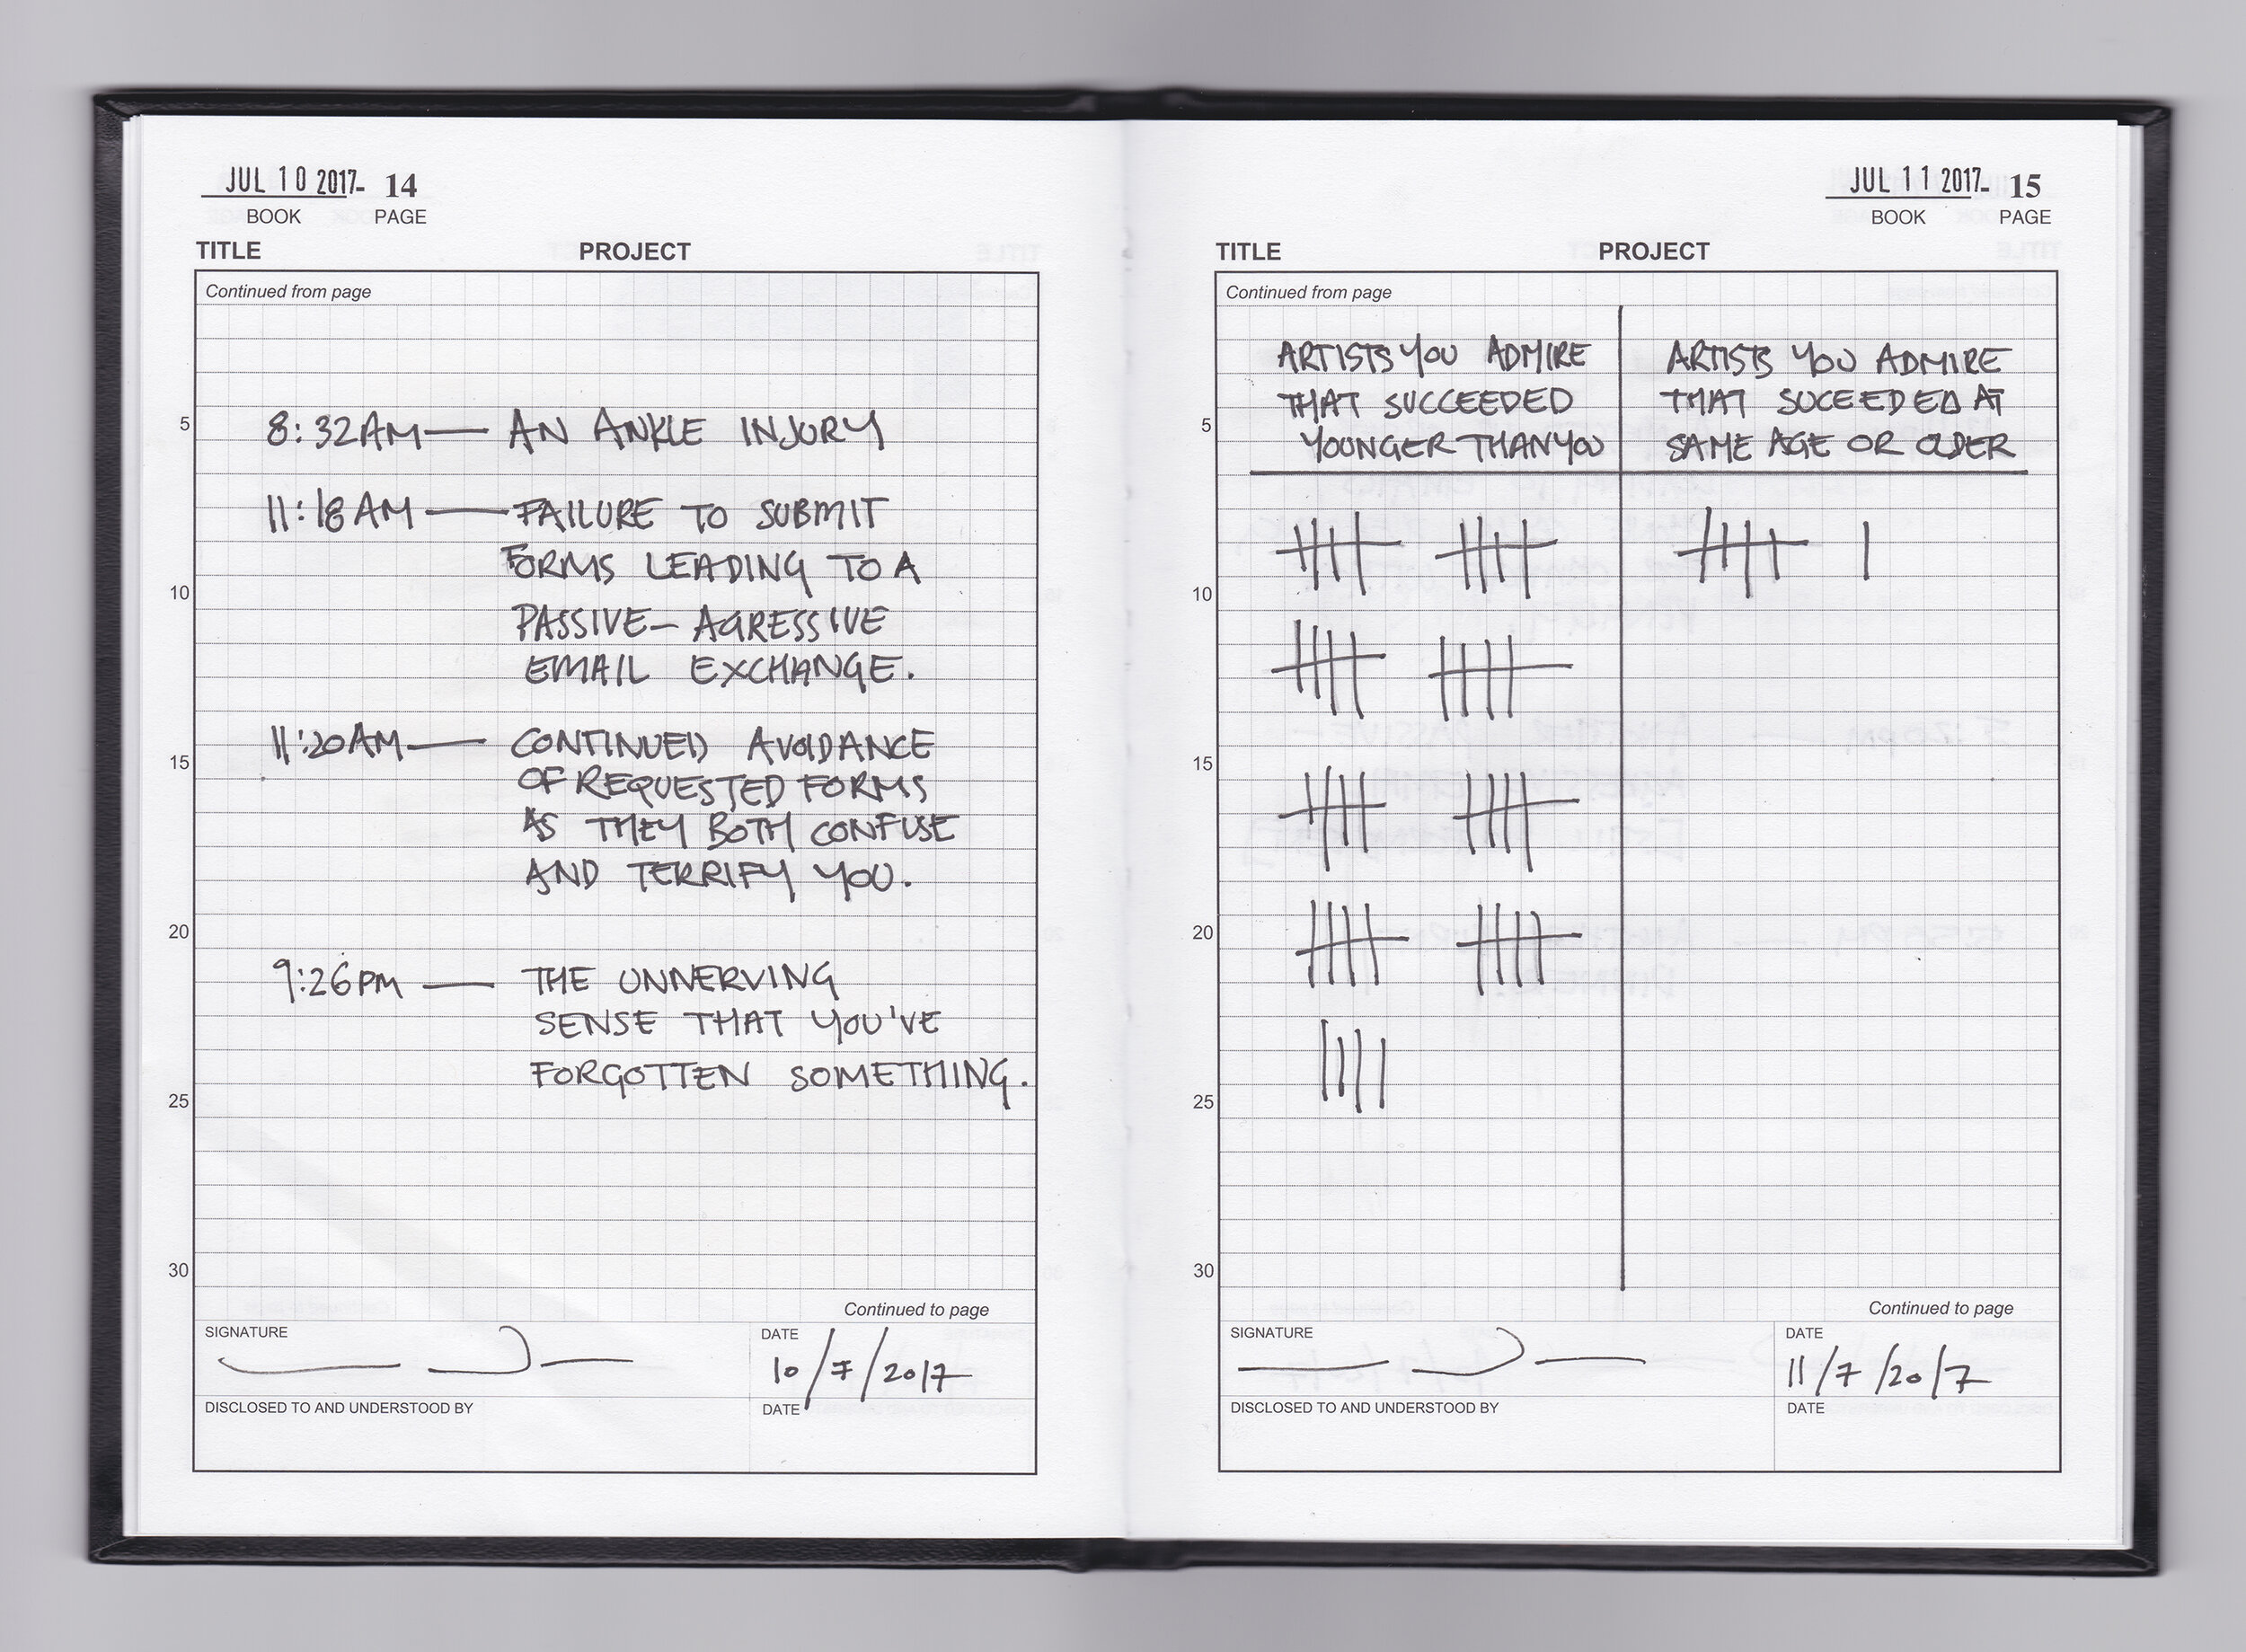 JUL 10 2017- 14
BOOK PAGE
TITLE PROJECT
Continued from page
5
8:32AM — AN ANKLE INJURY
11:18AM — FAILURE TO SUBMIT
FORMS LEADING TO A
10
PASSIVE- AGRESSIVE
EMAIL EXCHANGE.
11:20AM — CONTINUED AVOIDANCE
15
OF REQUESTED FORMS
AS THEY BOTH CONFUSE
AND TERRIFY YOU.
20
9:26PM — THE UNNERVING
SENSE THAT YOU'VE
FORGOTTEN SOMETHING.
25
30
Continued to page
SIGNATURE DATE
10/7/2017
DISCLOSED TO AND UNDERSTOOD BY DATE
JUL 11 2017- 15
BOOK PAGE
TITLE PROJECT
Continued from page
ARTISTS YOU ADMIRE
THAT SUCCEEDED
YOUNGER THAN YOU
ARTISTS YOU ADMIRE
THAT SUCEEDED AT
SAME AGE OR OLDER
5
10
15
20
25
30
Continued to page
SIGNATURE DATE
11/7/2017
DISCLOSED TO AND UNDERSTOOD BY DATE